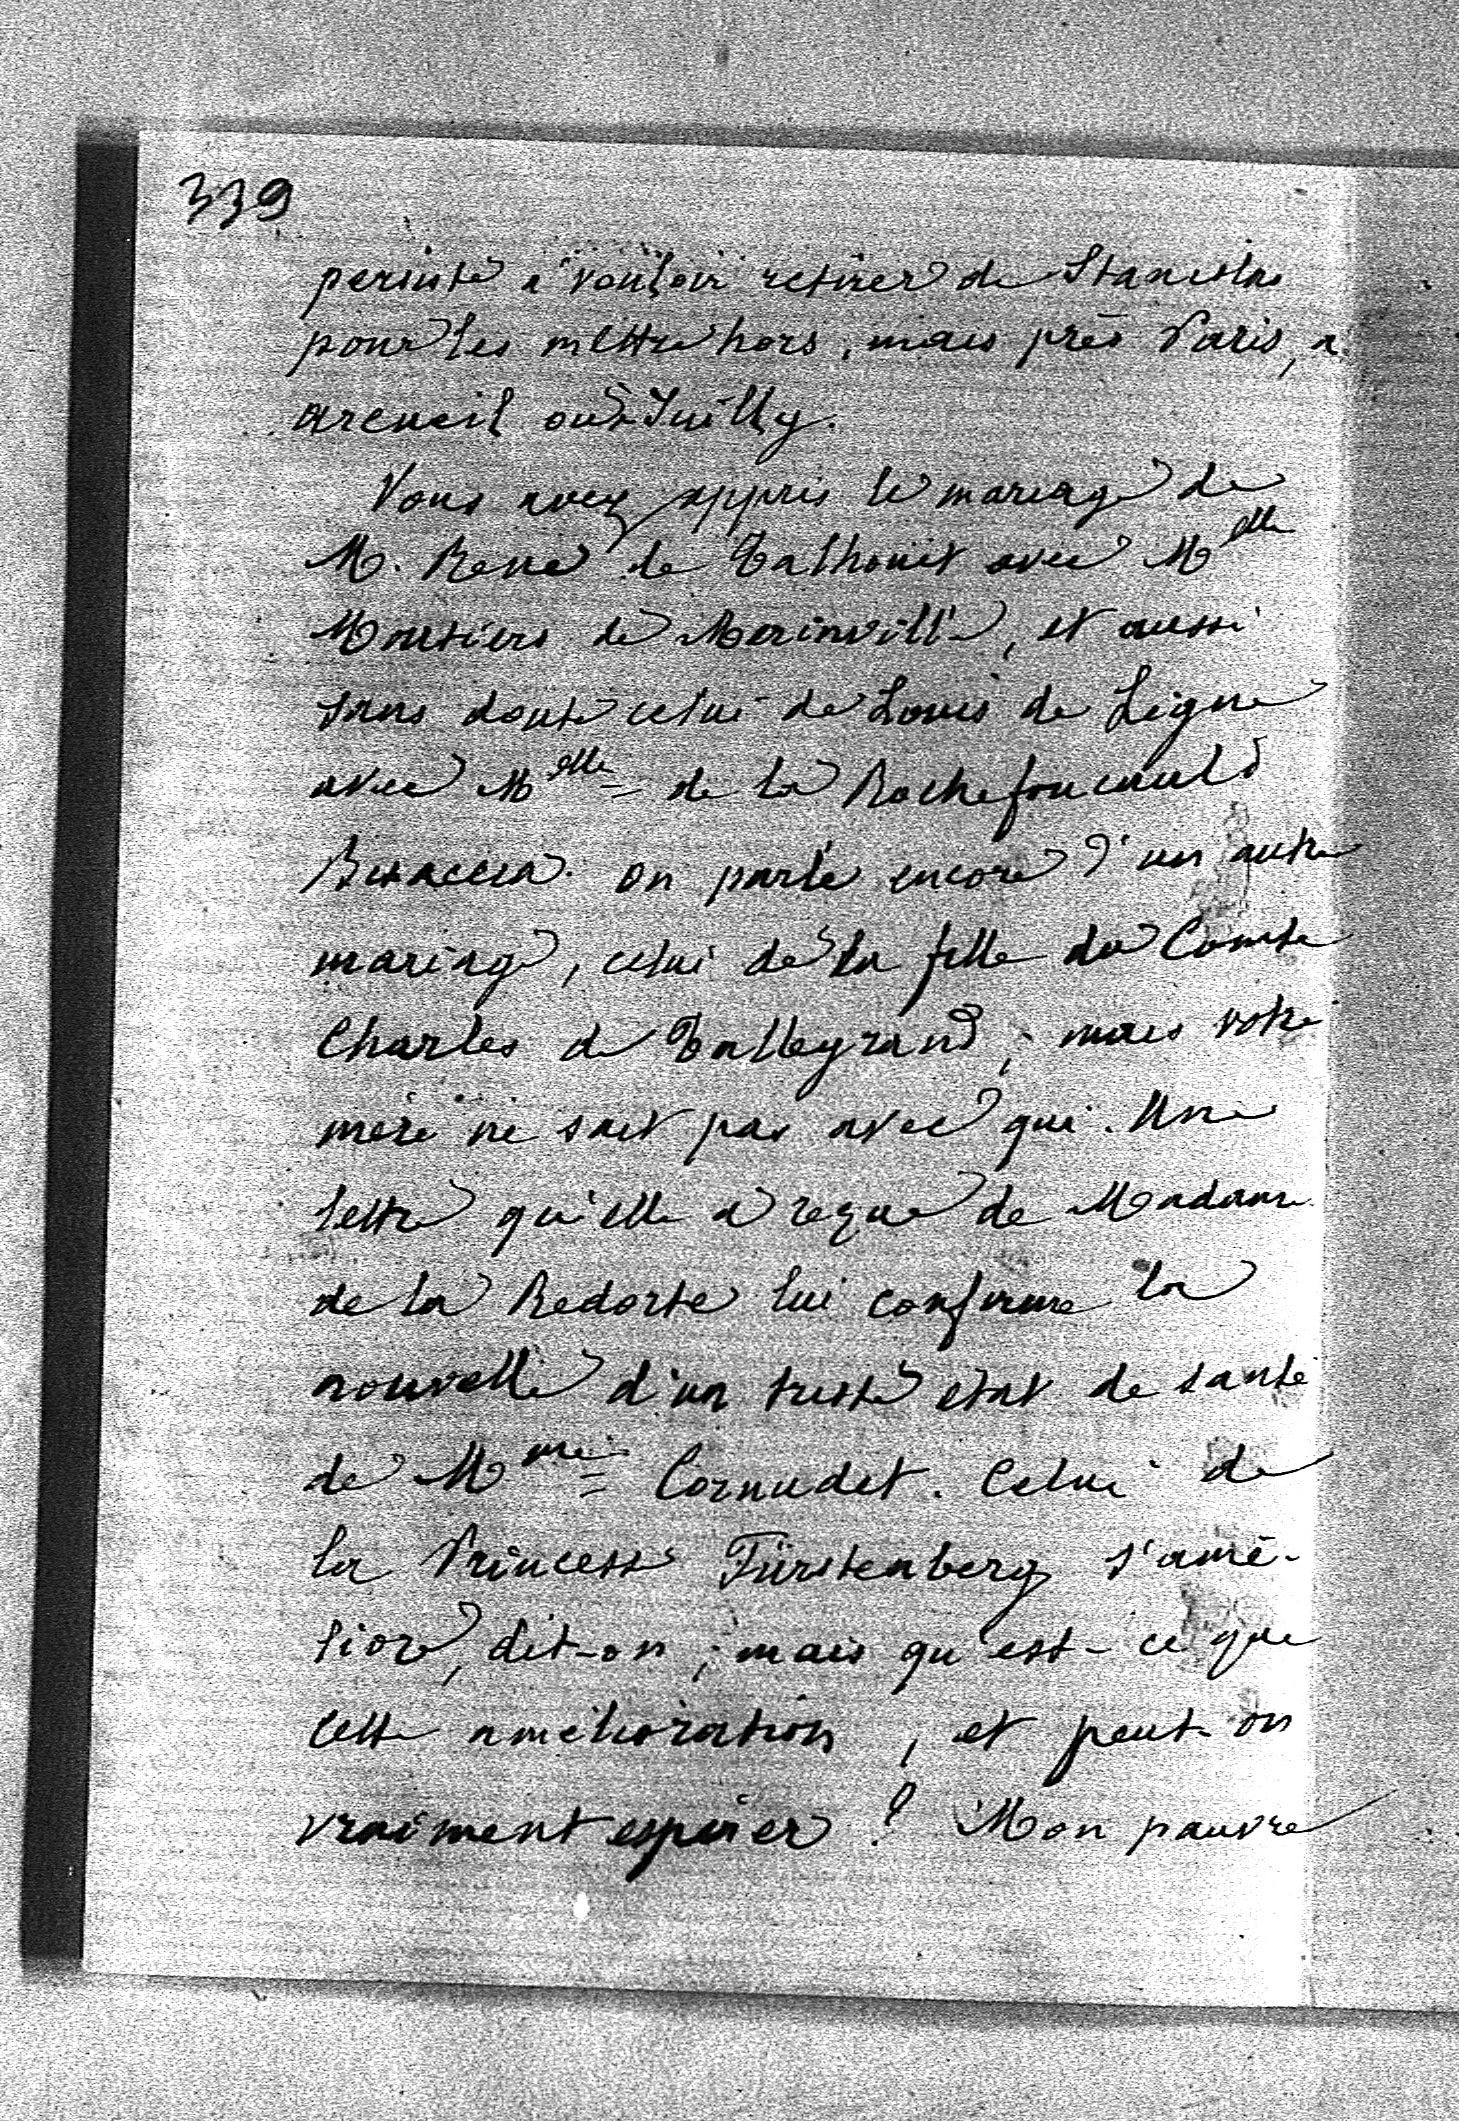 339
persiste à vouloir retirer de Stanislas
pour les mettre hors, mais près Paris, à
Arcueil ou à Juilly.
Vous avez appris le mariage de
M. René de Talhouët avec M^elle
Moustiers de Merinville, et aussi
sans doute celui de Louis de Ligne
avec M^elle de la Rochefoucauld
Bisaccia. On parle encore d'un autre
mariage, celui de la fille du Comte
Charles de Talleyrand, mais votre
mère ne sait pas avec qui. Une
lettre qu'elle a reçue de Madame
de la Redorte lui confirme la
nouvelle d'un triste état de santé
de M^me Cornudet. Celui de
la Princesse Fürstenberg s'amé-
liore, dit-on ; mais qu'est-ce que
cette amélioration, et peut-on
vraiment espérer ? Mon pauvre